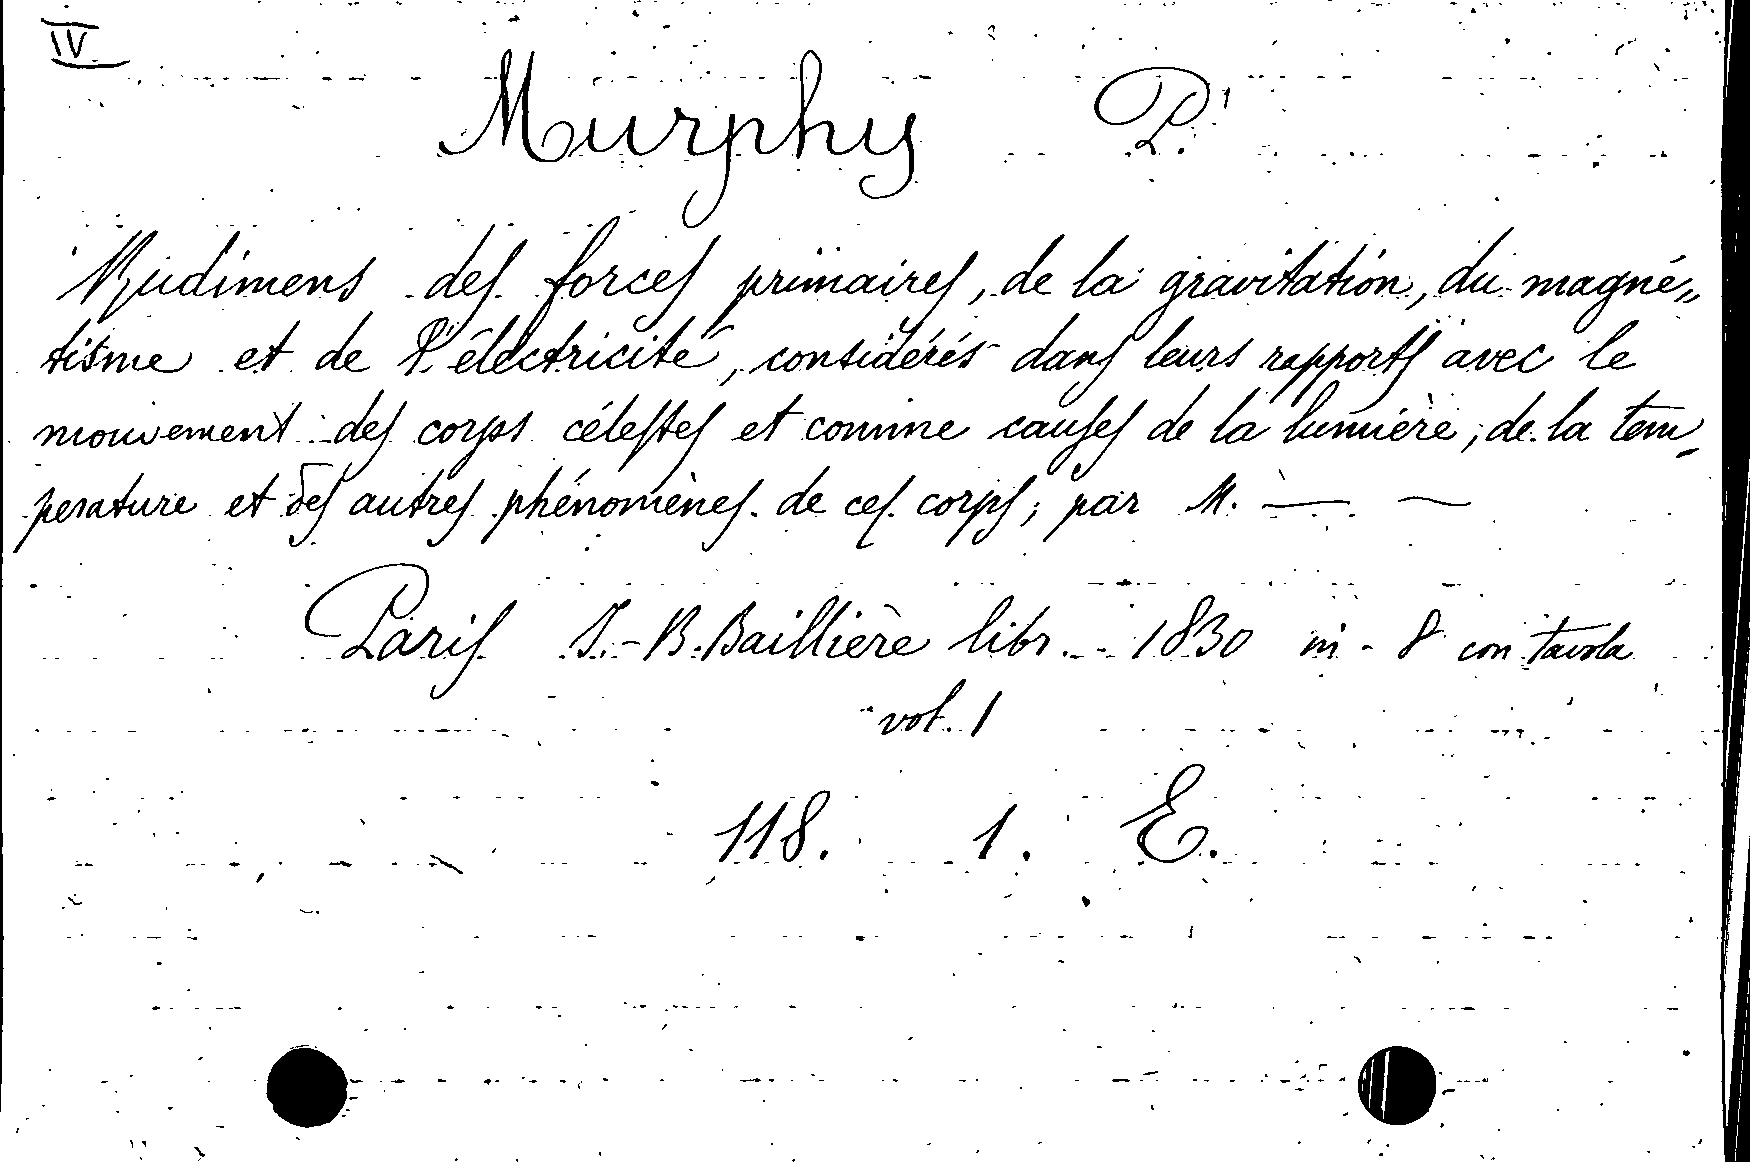 IV
Murphy P.
Rudimens des forces primaires, de la gravitation, du magné=
tisme et de l'électricité, considérés dans leurs rapports avec le
mouvement des corps célestes et comme causes de la lumière, de la tem
perature et des autres phénomènes de ces corps; par M. — —
Paris J.-B. Baillière libr. 1830 in-8 con tavola
vol. 1
118. 1. E.